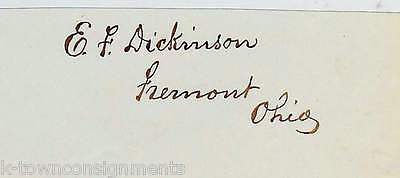 E. F. Dickinson
Fremont
Ohio
k-townconsignments